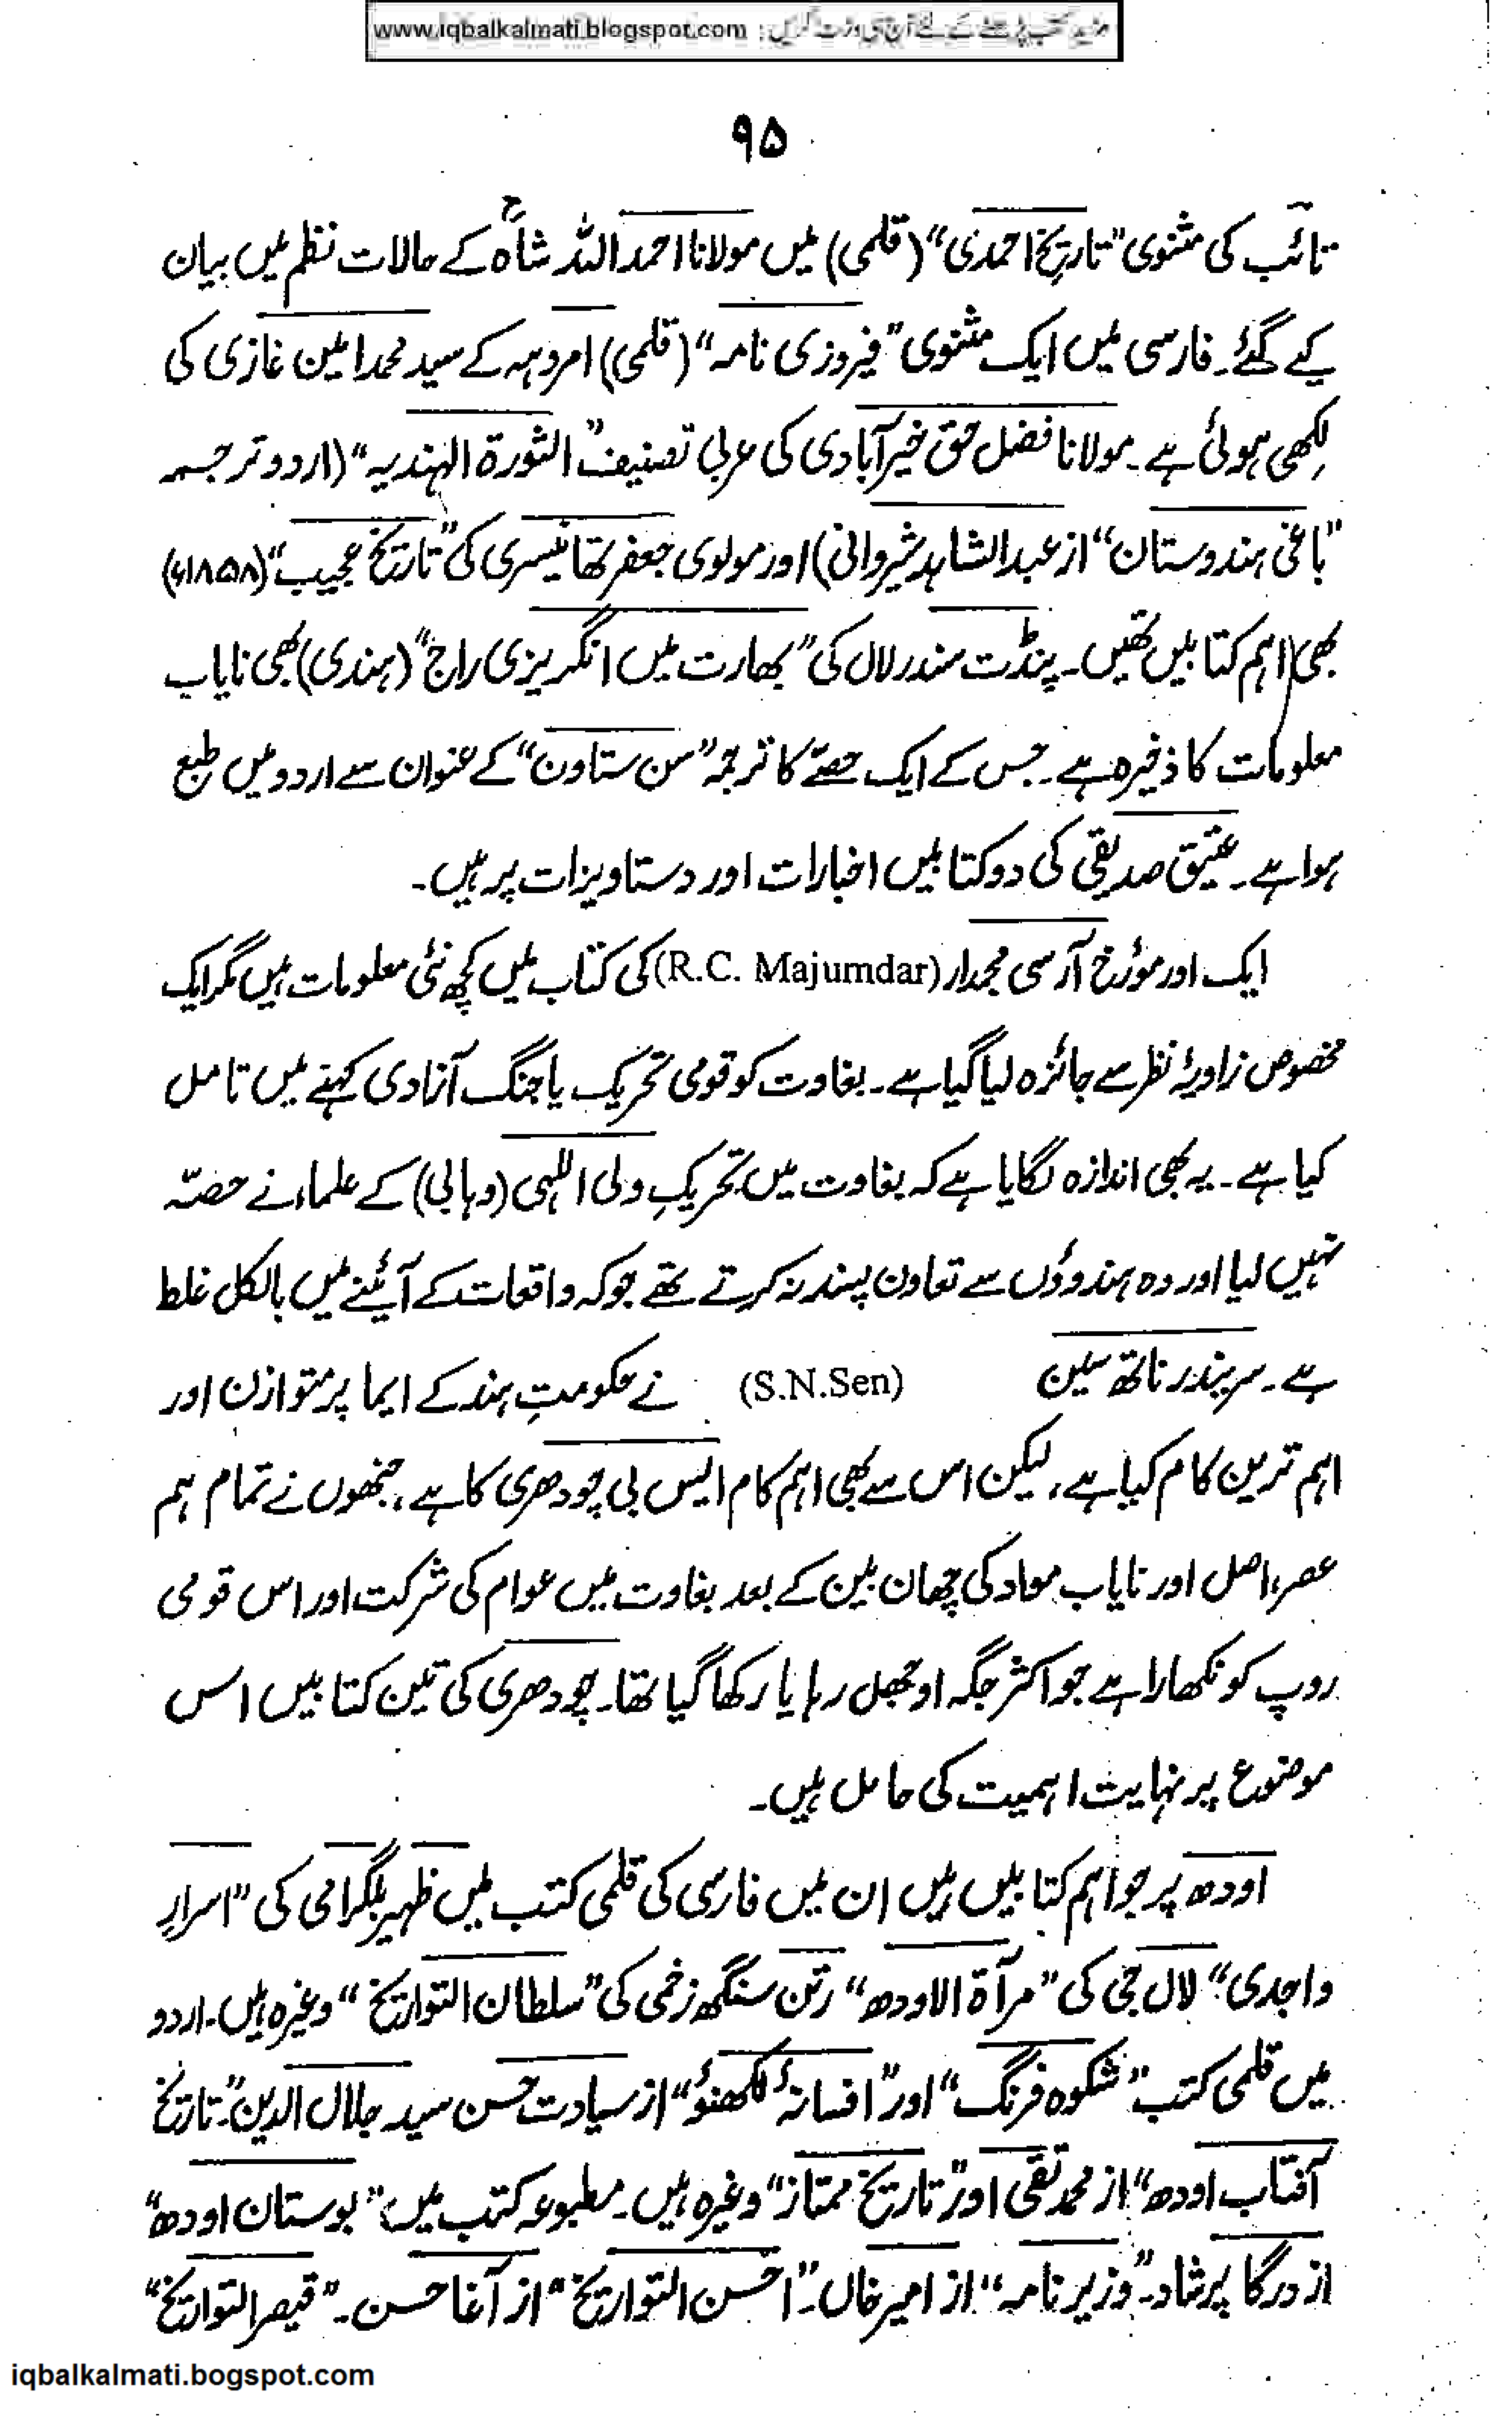 مزید کتب پڑھنے کے لئے آج ہی وزٹ کریں : www.iqbalkalmati.blogspot.com
۹۵
تائب کی مثنوی "تاریخ احمدی" (قلمی) میں مولانا احمد اللہ شاہؒ کے حالات نظم میں بیان
کیے گئے۔ فارسی میں ایک مثنوی "فیروزی نامہ" (قلمی) امروہہ کے سید محمد امین غازی کی
لکھی ہوئی ہے۔ مولانا فضل حق خیرآبادی کی عربی تصنیف "الثورۃ الہندیہ" (اردو ترجمہ
"باغی ہندوستان" از عبدالشاہد شیروانی) اور مولوی جعفر تھانیسری کی "تاریخ عجیب" (۱۸۵۸ء)
بھی اہم کتابیں تھیں۔ پنڈت سندر لال کی "بھارت میں انگریزی راج" (ہندی) بھی نایاب
معلومات کا ذخیرہ ہے۔ جس کے ایک حصّے کا ترجمہ "سن ستاون" کے عنوان سے اردو میں طبع
ہوا ہے۔ عتیق صدیقی کی دو کتابیں اخبارات اور دستاویزات پر ہیں۔
ایک اور مورّخ آر سی مجمدار (R.C. Majumdar) کی کتاب میں کچھ نئی معلومات ہیں مگر ایک
مخصوص زاویۂ نظر سے جائزہ لیا گیا ہے۔ بغاوت کو قومی تحریک یا جنگ آزادی کہنے میں تامل
کیا ہے۔ یہ بھی اندازہ لگایا ہے کہ بغاوت میں تحریکِ ولی اللہی (وہابی) کے علماء نے حصّہ
نہیں لیا اور وہ ہندوؤں سے تعاون پسند نہ کرتے تھے جو کہ واقعات کے آئینے میں بالکل غلط
ہے۔ سریندر ناتھ سین (S.N.Sen) نے حکومتِ ہند کے ایما پر متوازن اور
اہم ترین کام کیا ہے، لیکن اس سے بھی اہم کام ایس بی چودھری کا ہے، جنھوں نے تمام ہم
عصر، اصل اور نایاب مواد کی چھان بین کے بعد بغاوت میں عوام کی شرکت اور اس قومی
روپ کو نکھارا ہے جو اکثر جگہ اوجھل رہا یا رکھا گیا تھا۔ چودھری کی تین کتابیں اس
موضوع پر نہایت اہمیت کی حامل ہیں۔
اودھ پر جو اہم کتابیں ہیں ان میں فارسی کی قلمی کتب میں ظہیر بلگرامی کی "اسرارِ
واجدی" لال جی کی "مرآۃ الاودھ" رتن سنگھ زخمی کی "سلطان التواریخ" وغیرہ ہیں۔ اردو
میں قلمی کتب "شکوہ فرنگ" اور "افسانۂ لکھنؤ" از سیادت حسن سید جلال الدین۔ "تاریخ
آفتاب اودھ" از محمد تقی اور "تاریخ ممتاز" وغیرہ ہیں۔ مطبوعہ کتب میں "بوستان اودھ"
از درگا پرشاد۔ "وزیر نامہ" از امیر خاں۔ "احسن التواریخ" از آغا حسن۔ "قیصر التواریخ"
iqbalkalmati.bogspot.com